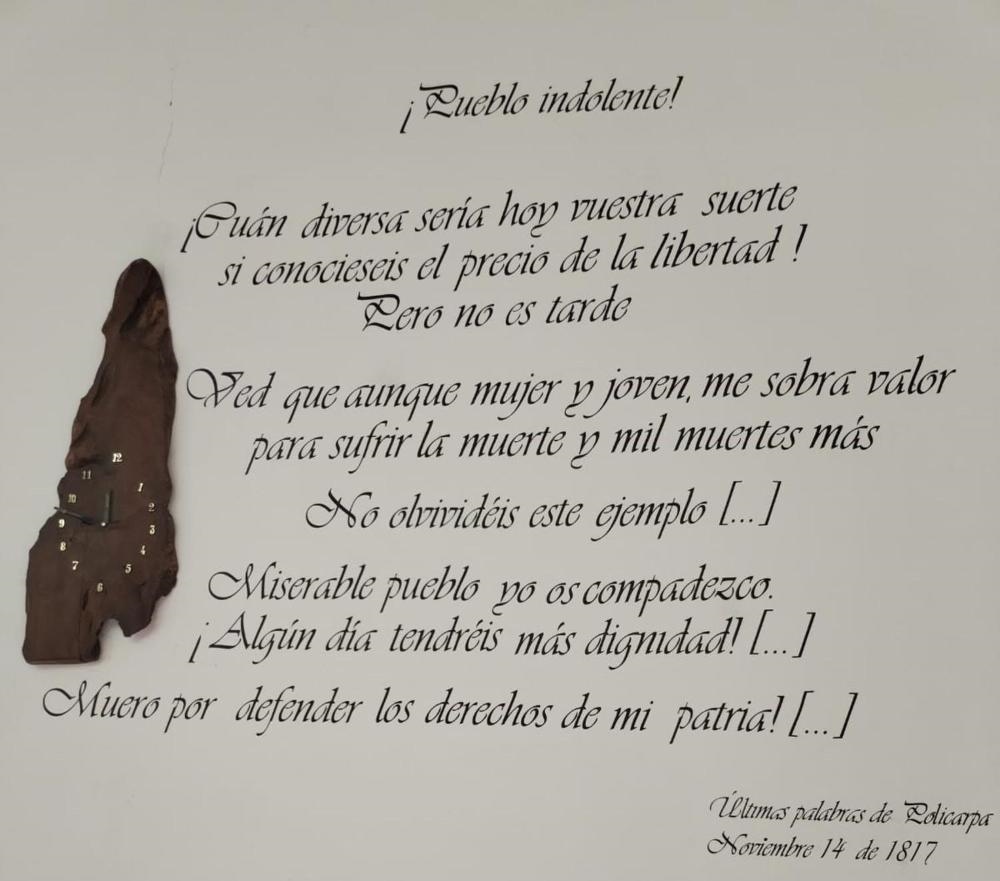 ¡Pueblo indolente!
¡Cuán diversa sería hoy vuestra suerte
si conocieseis el precio de la libertad !
Pero no es tarde
Ved que aunque mujer y joven, me sobra valor
para sufrir la muerte y mil muertes más
No olvividéis este ejemplo [...]
Miserable pueblo yo os compadezco.
¡Algún día tendréis más dignidad! [...]
Muero por defender los derechos de mi patria! [...]
Últimas palabras de Policarpa
Noviembre 14 de 1817
12
11
1
10
2
9
3
8
4
7
5
6